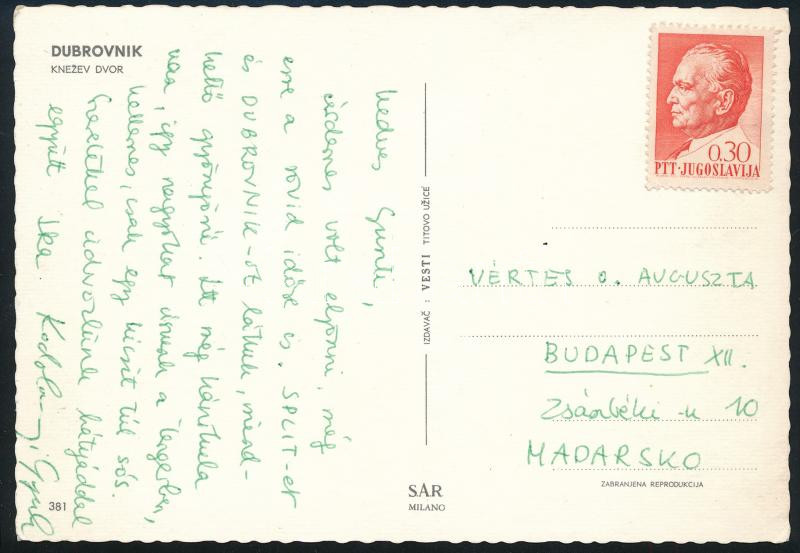 DUBROVNIK
KNEŽEV DVOR
Kedves Gusti,
érdemes volt eljönni, még
erre a rövid időre is. SPLIT-et
és DUBROVNIK-ot láttuk, mind-
kettő gyönyörű. Itt még kánikula
van, így nagyokat úszunk a tengerben,
kellemes, csak egy kicsit túl sós.
Szeretettel üdvözlünk
együtt Ika Kodolányi Gyula
381
IZDAVAČ : VESTI TITOVO UŽICE
SAR
MILANO
0.30
PTT·JUGOSLAVIJA
VÉRTES o. AUGUSZTA
BUDAPEST XII.
Zsámbéki u 10
MADARSKO
ZABRANJENA REPRODUKCIJA